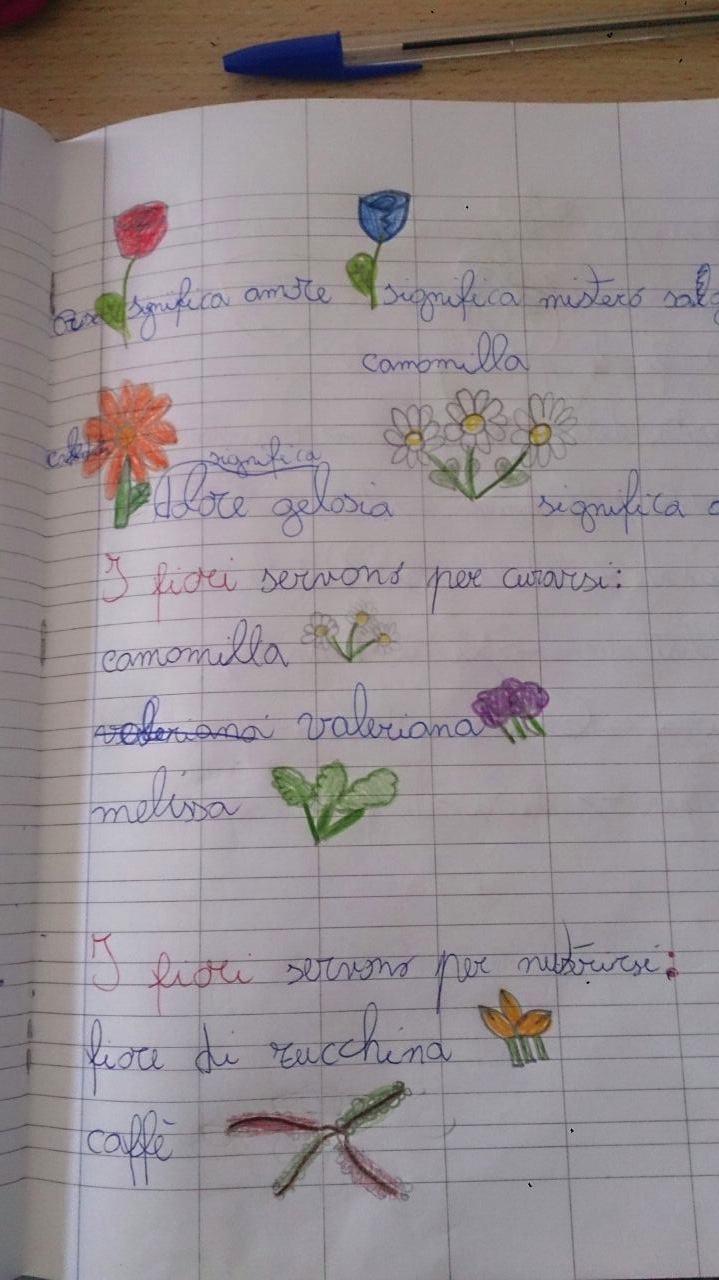 significa amore significa mistero
camomilla
significa
dolore gelosia significa
I fiori servono per curarsi:
camomilla
valeriana valeriana
melissa
I fiori servono per nutrirsi:
fiore di zucchina
caffè